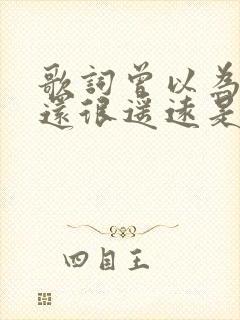 歌詞曾以為
還很遙遠是
四目王